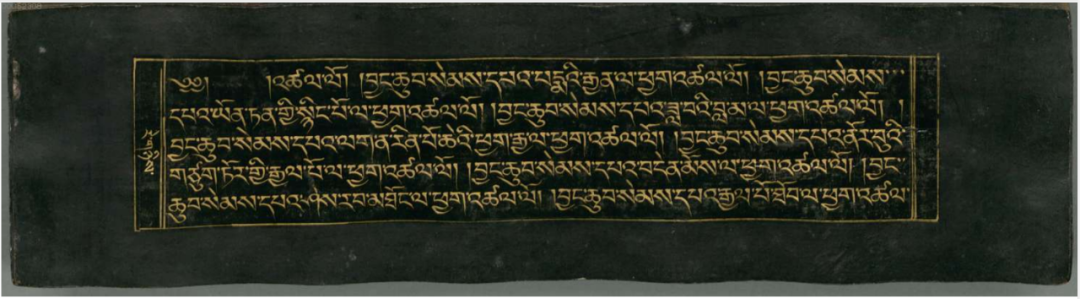 ༄༅། །འཚལ་ལོ། །བྱང་ཆུབ་སེམས་དཔའ་པདྨའི་རྒྱན་ལ་ཕྱག་འཚལ་ལོ། །བྱང་ཆུབ་སེམས་
དཔའ་ཡོན་ཏན་གྱི་སྙིང་པོ་ལ་ཕྱག་འཚལ་ལོ། །བྱང་ཆུབ་སེམས་དཔའ་ཟླ་བའི་བླ་མ་ལ་ཕྱག་འཚལ་ལོ། །
བྱང་ཆུབ་སེམས་དཔའ་ལག་ན་རིན་པོ་ཆེའི་ཕྱག་རྒྱ་ལ་ཕྱག་འཚལ་ལོ། །བྱང་ཆུབ་སེམས་དཔའ་ནོར་བུའི་
གཙུག་ཏོར་གྱི་རྒྱལ་པོ་ལ་ཕྱག་འཚལ་ལོ། །བྱང་ཆུབ་སེམས་དཔའ་བང་ནམོས་ལ་ཕྱག་འཚལ་ལོ། །བྱང་
ཆུབ་སེམས་དཔའ་ཤེས་རབ་མཐོང་ལ་ཕྱག་འཚལ་ལོ། །བྱང་ཆུབ་སེམས་དཔའ་རྒྱལ་པོ་ཐོབ་ལ་ཕྱག་འཚལ་